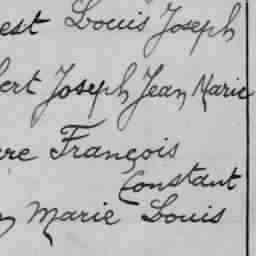 est Louis Joseph
ert Joseph Jean Marie
re François
Constant
Marie Louis